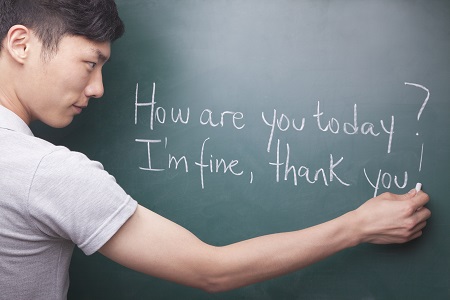 How are you today?
I'm fine, thank you!